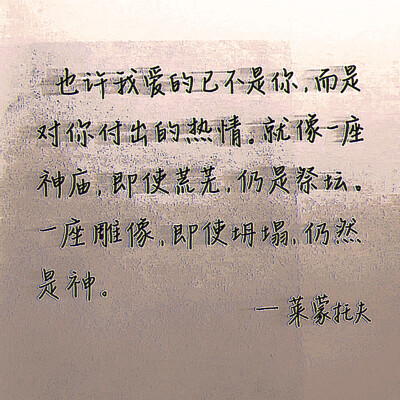 也许我爱的已不是你,而是
对你付出的热情。就像一座
神庙,即使荒芜,仍是祭坛。
一座雕像,即使坍塌,仍然
是神。
— 莱蒙托夫